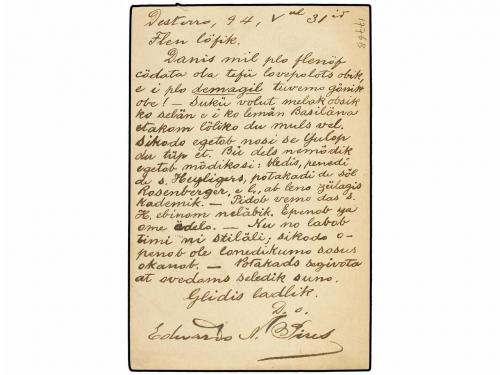 Desterro, 94, Vul 31id
17768
Flen löfik.
Danis mil plo flenöf
cödata oba tefü lovepolots obik,
e i plo demagil tuvemo gönik
obe! — Sukü volut melak obsik
ko selän e i ko lemän Basiläna
etakom löliko du muls vel.
Sikodo egetob nosi se Yulop
du tüp et. Bü dels nemödik
egetob mödikosi: bledis, penedi
de s. Heyligers, potakadi de söl
Rosenberger, e l., ab leno zülagis
kademik. — Pidob vemo das s.
H. ebinom neläbik. Epenob ya
ome ädelo. — Nu no labob
timi ni stiläli; sikodo o-
penob ole lonedikumo sosus
okanob. — Potakads segivota
at ovedoms seledik suno.
Glidis ladlik.
D. o.
Eduardo A. Pires